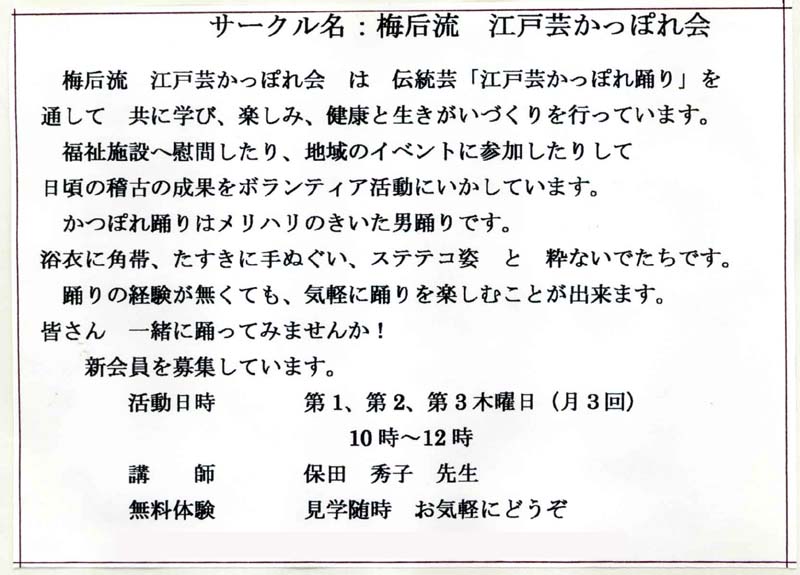 サークル名：梅后流　江戸芸かっぽれ会
梅后流　江戸芸かっぽれ会　は　伝統芸「江戸芸かっぽれ踊り」を
通して　共に学び、楽しみ、健康と生きがいづくりを行っています。
福祉施設へ慰問したり、地域のイベントに参加したりして
日頃の稽古の成果をボランティア活動にいかしています。
かつぽれ踊りはメリハリのきいた男踊りです。
浴衣に角帯、たすきに手ぬぐい、ステテコ姿　と　粋ないでたちです。
踊りの経験が無くても、気軽に踊りを楽しむことが出来ます。
皆さん　一緒に踊ってみませんか！
新会員を募集しています。
活動日時　　　　第１、第２、第３木曜日（月３回）
10時～12時
講　　師　　　　保田　秀子　先生
無料体験　　　　見学随時　お気軽にどうぞ